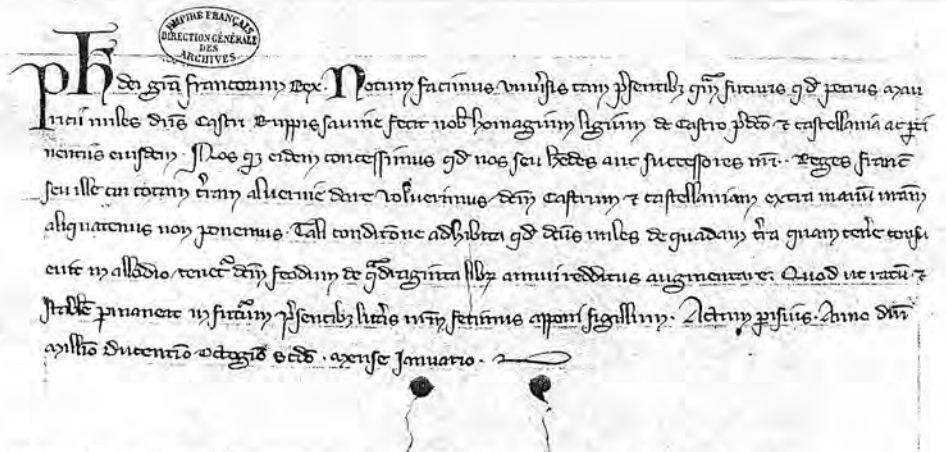 EMPIRE FRANÇAIS
DIRECTION GÉNÉRALE
DES
ARCHIVES
Ph dei gra francorum Rex. Notum facimus univsis tam psentibz qm futuris qd petrus mau
ricii miles dns Castri Ruppis savine fecit nob homagium ligium de Castro pdco et castellania ac pti
nentiis eiusdem. Nos qz eidem concessimus qd nos seu hedes aut successores nri.. Reges franc
seu ille cui totam tram alvernie dare voluerimus dcm Castrum et castellaniam extra manu nram
aliquatenus non ponemus. Tali condicone adhibita qd dcus miles de quadam tra quam tene consu
evit in allodio, tenet dcm feodum de qdraginta libr annui redditus augmentare. Quod ut ratu et
stabile pmaneat in futurum psentibz litris nrm fecimus apponi sigillum. Actum parisius. Anno dni
Millio Ducentio Octogio scdo. mense Januario.